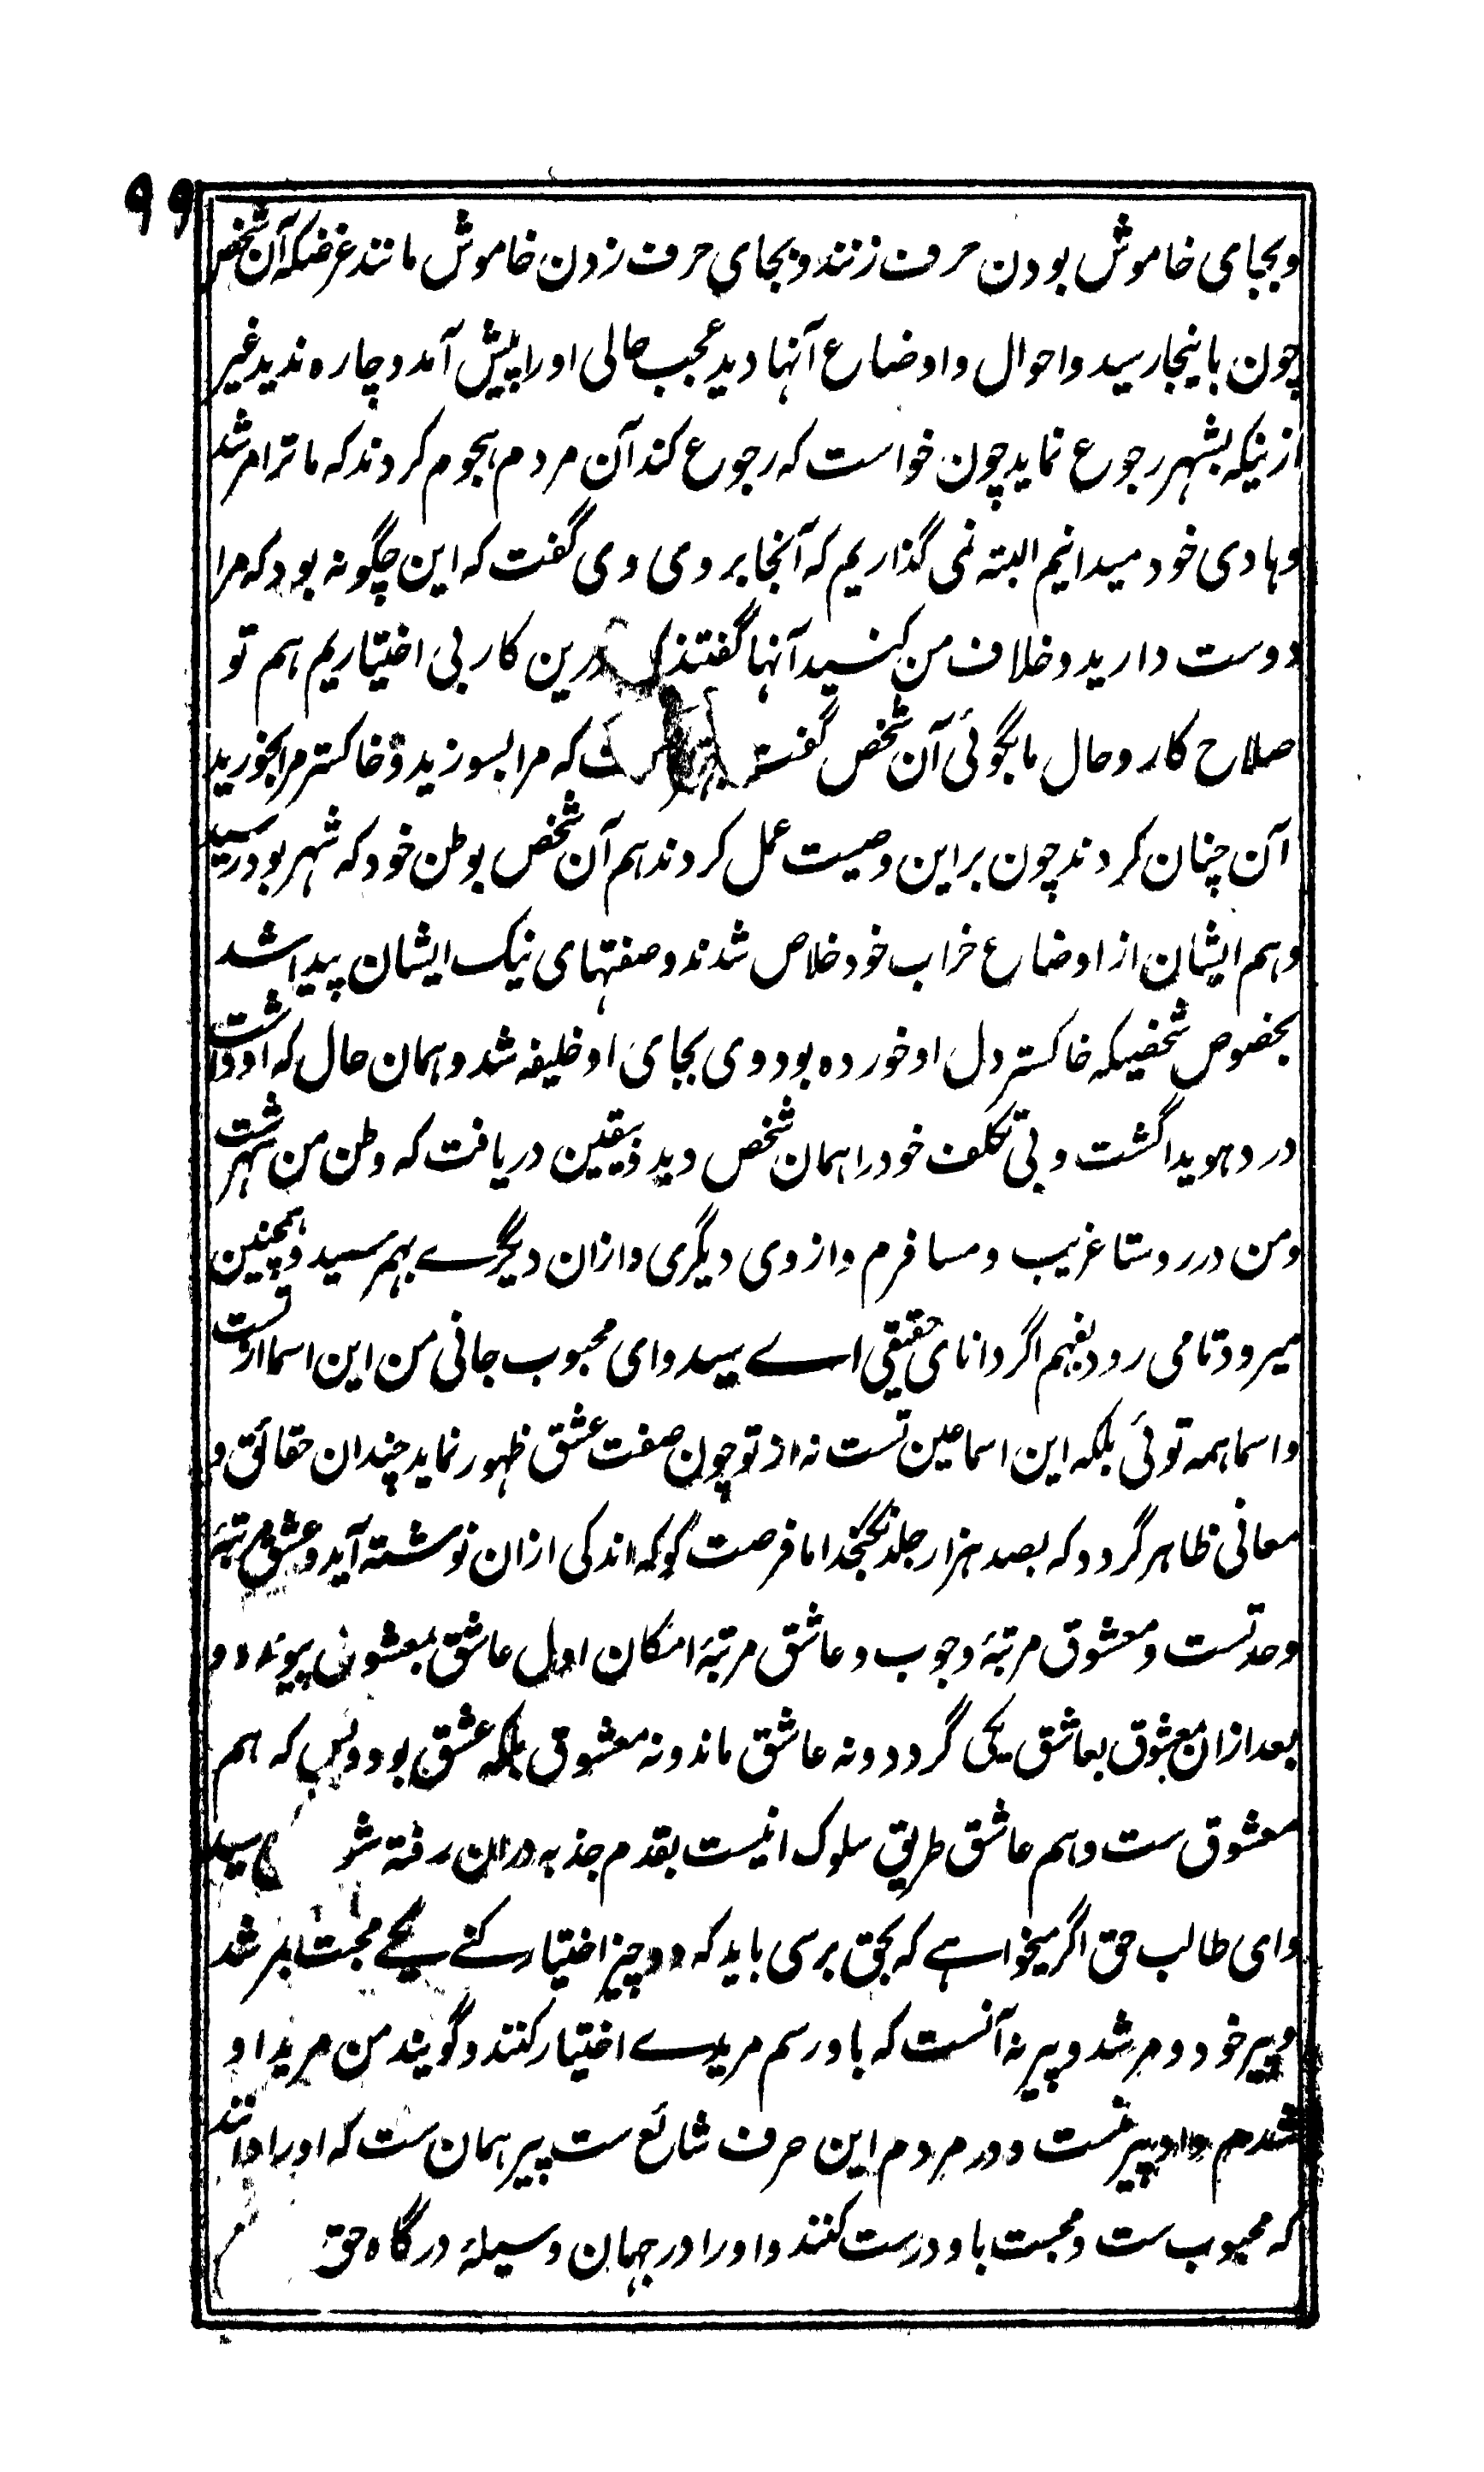 ۹۹
وبجای خاموش بودن حرف زنند و بجای حرف زدن خاموش مانند غرضکه آن شخص
چون باینجا رسید و احوال و اوضاع آنها دید عجب حالی او را پیش آمد و چاره ندید غیر
ازینکه بشهر رجوع نماید چون خواست که رجوع کند آن مردم هجوم کردند که ما ترا مرشد
وهادی خود میدانیم البته نمی گذاریم که آنجا بروی وی گفت که این چگونه بود که مرا
دوست دارید و خلاف من کنید آنها گفتند که درین کار بی اختیاریم هم تو
صلاح کار و حال ما بگوئی آن شخص گفت که مرا بسوزید و خاکستر مرا بخورید
آن چنان کردند چون بر این وصیت عمل کردند هم آن شخص بوطن خود که شهر بود رسید
وهم ایشان از اوضاع خراب خود خلاص شدند و صفتهای نیک ایشان پیدا شد
بخصوص شخصیکه خاکستر دل او خورده بود وی بجای او خلیفه شد و همان حال که او داشت
در د هویدا گشت و بی تکلف خود را همان شخص دید و بیقین دریافت که وطن من شهر ست
ومن در روستا غریب و مسافرم و از وی دیگری و ازان دیگرے بهم رسید و همچنین
میرود تا می رود بفهم اگر دانای حقیقی اے سید وای محبوب جانی من این اسما از تست
و اسما همه توئی بلکه این اسما عین تست نه از تو چون صفت عشق ظهور نماید چندان حقائق و
معانی ظاهر گردد که بصد هزار جلد نگنجد اما فرصت گو که اندکی ازان نوشته آید و عشق مرتبهٔ
وحدتست و معشوق مرتبهٔ وجوب و عاشق مرتبهٔ امکان اول عاشق بمعشوق پیوندد و
بعد ازان معشوق بعاشق یکی گردد و نه عاشق ماند و نه معشوق بلکه عشق بود و بس که هم
معشوق ست و هم عاشق طریق سلوک اینست بقدم جذبه دران رفته سید
وای طالب حق اگر میخواهے که بحق برسی باید که دو چیز اختیار کنے یکے محبت بمرشد
و پیر خود و مرشد و پیر نه آنست که باو رسم مریدے اختیار کنند و گویند من مرید او
شدم و او پیر منست و در مردم این حرف شائع ست پیر همان ست که او را دانند
که محبوب ست و محبت باو درست کنند و او را در جهان وسیلهٔ درگاه حق